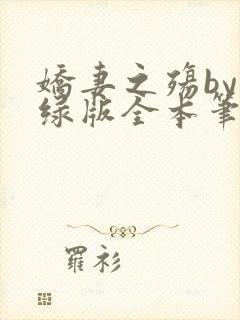 嬌妻之殤by
绿版全本筆
羅衫